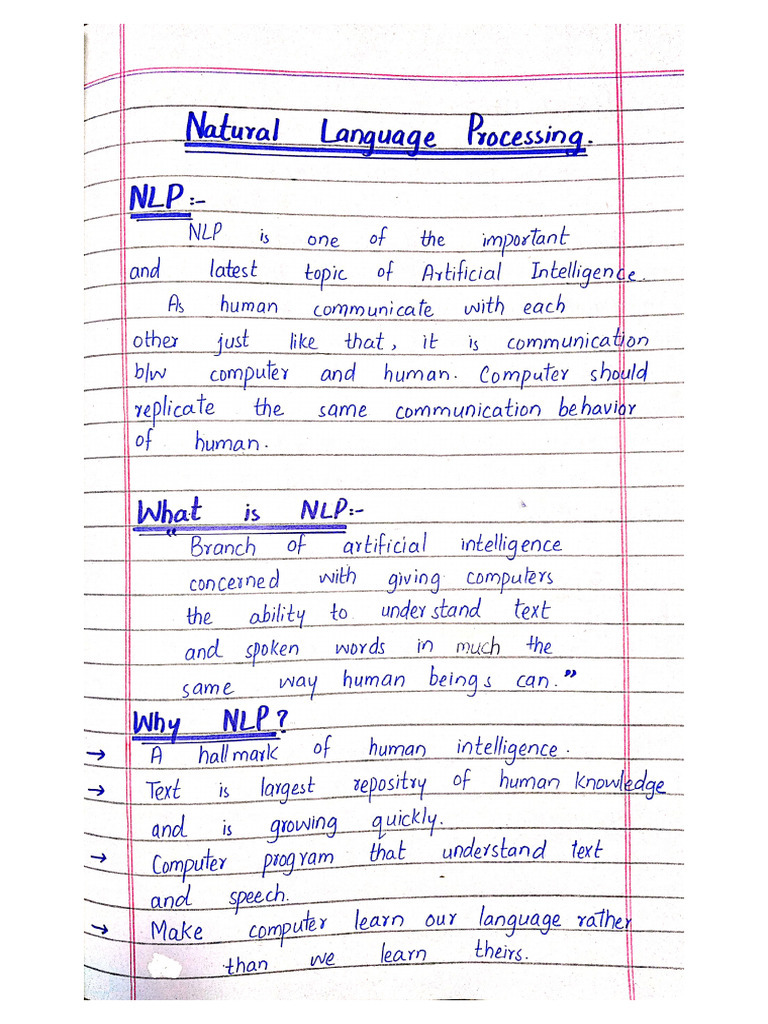 Natural Language Processing.
NLP :-
NLP is one of the important
and latest topic of Artificial Intelligence.
As human communicate with each
other just like that, it is communication
b/w computer and human. Computer should
replicate the same communication behavior
of human.
What is NLP:-
“Branch of artificial intelligence
concerned with giving computers
the ability to understand text
and spoken words in much the
same way human beings can.”
Why NLP?
→ A hallmark of human intelligence.
→ Text is largest repositry of human knowledge
and is growing quickly.
→ Computer program that understand text
and speech.
→ Make computer learn our language rather
than we learn theirs.